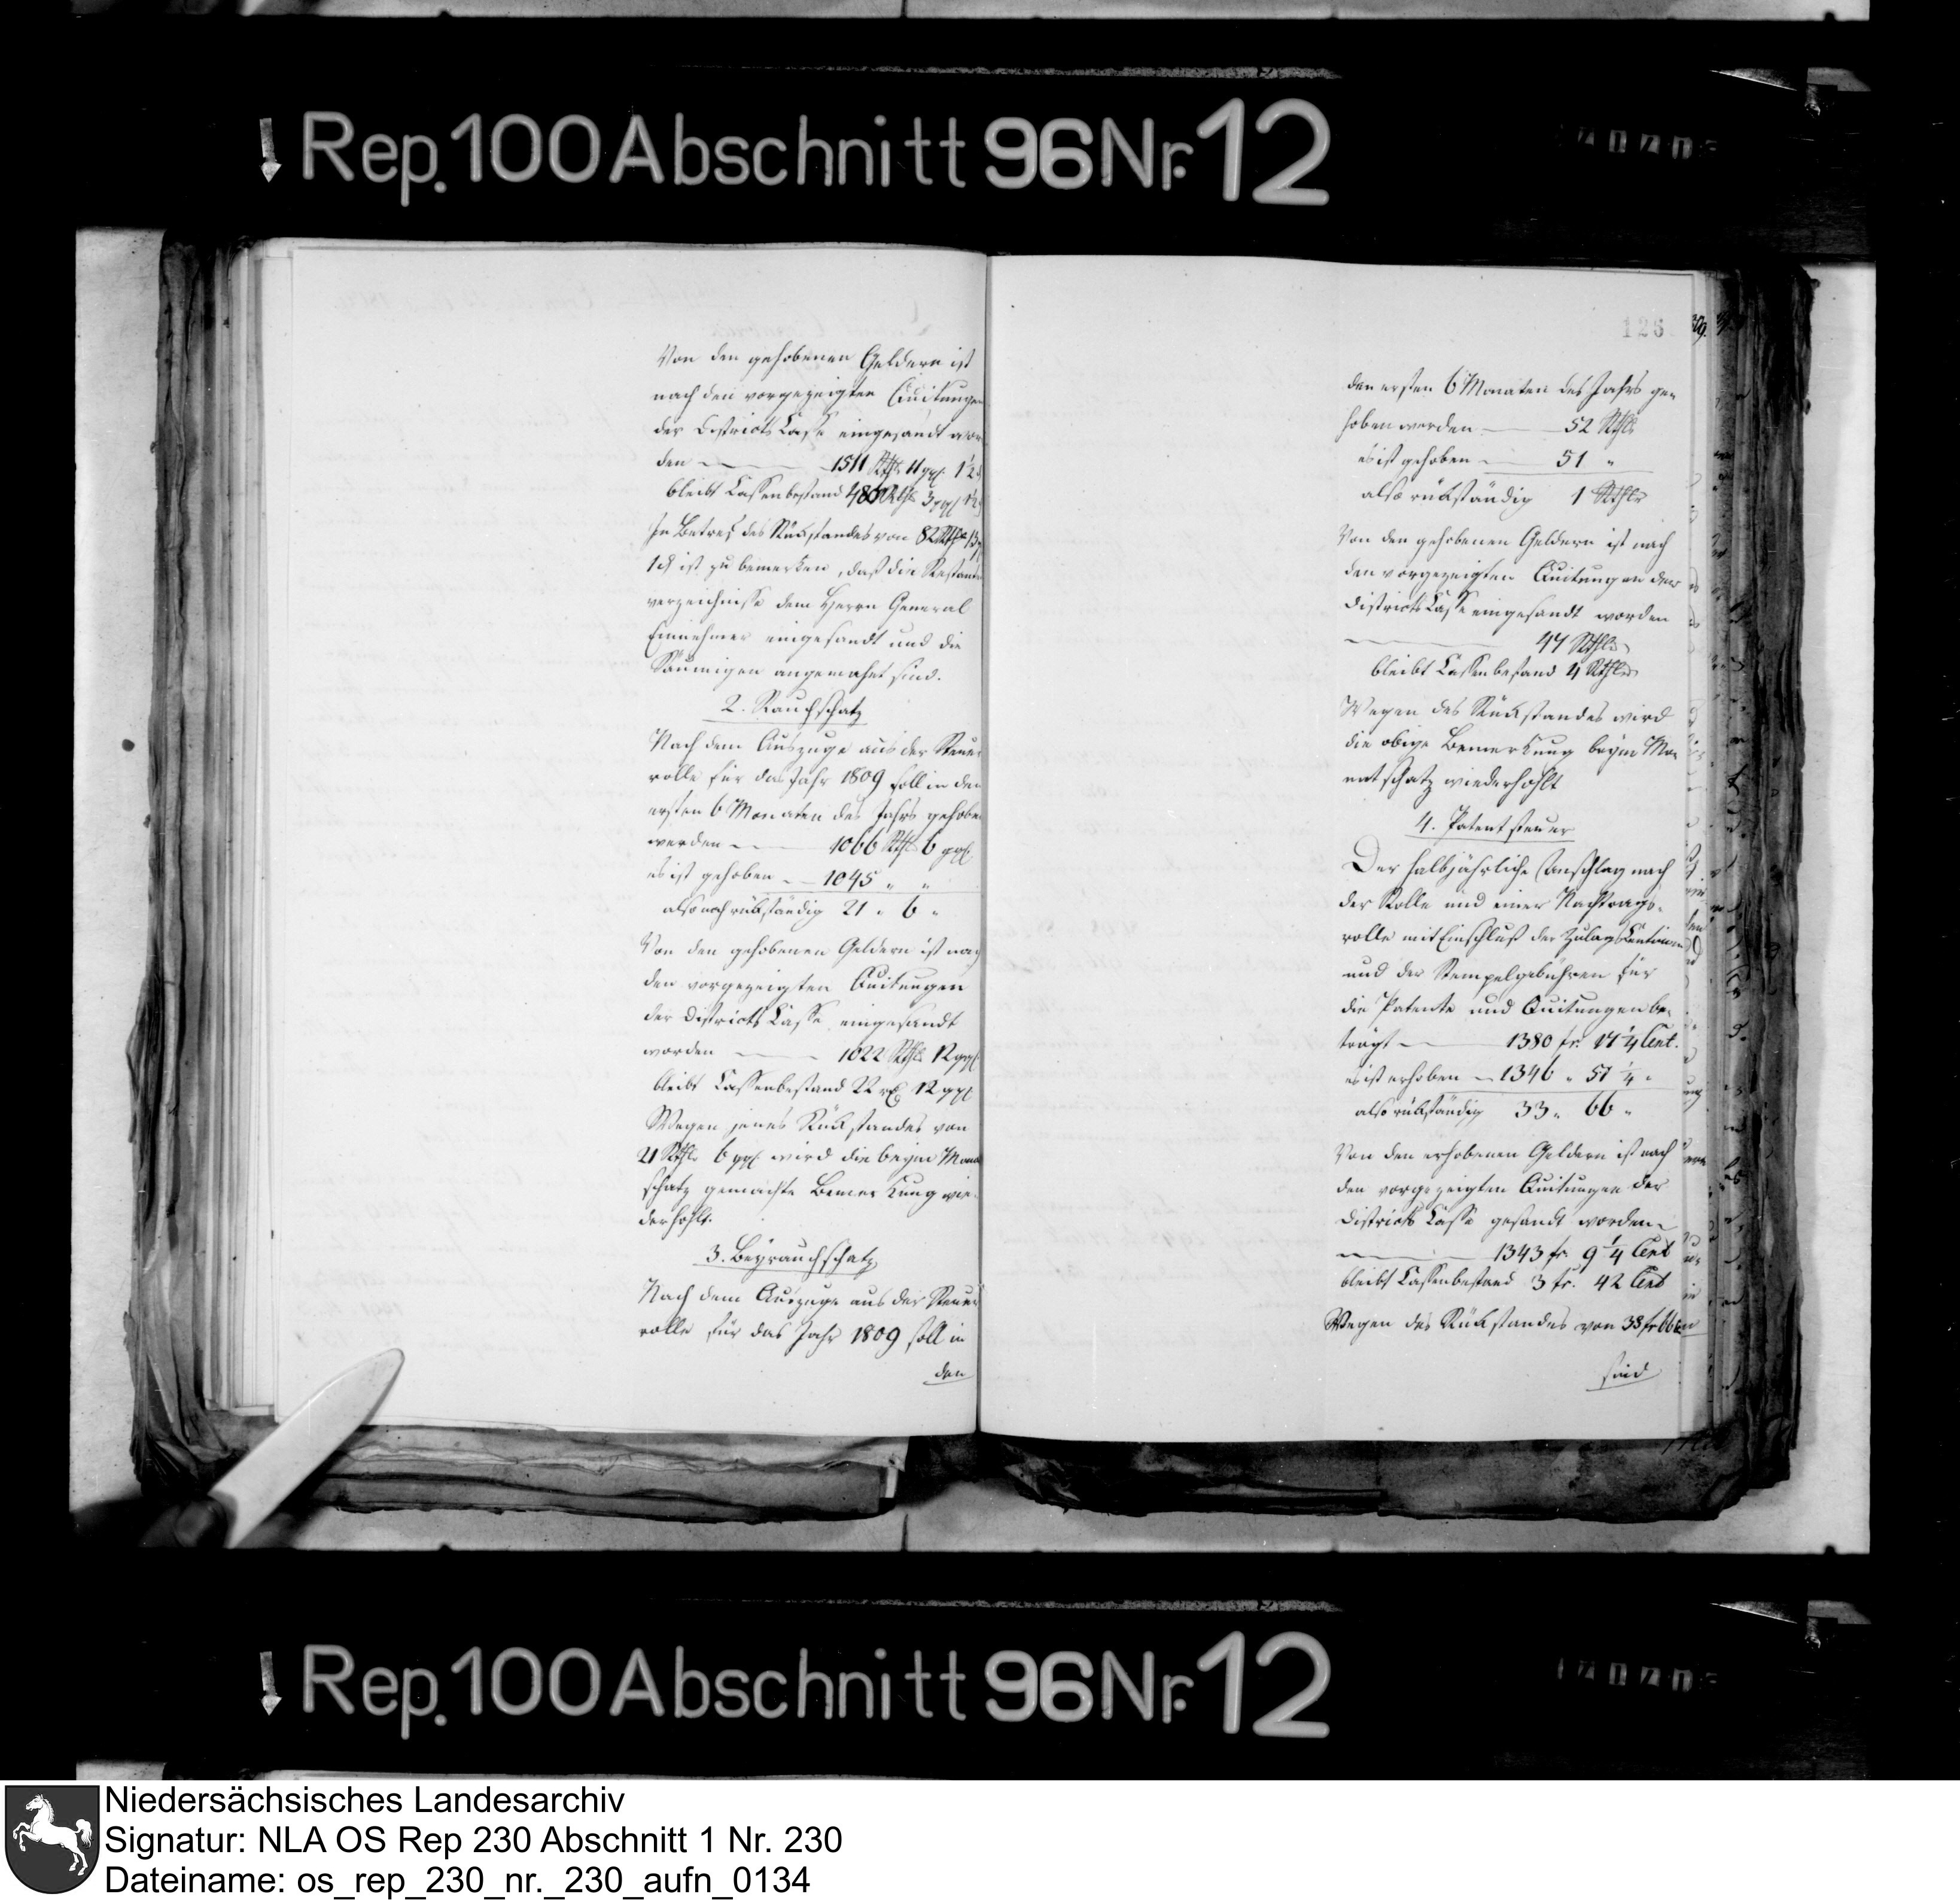 Rep. 100 Abschnitt 96 Nr. 12
Von den gehobenen Geldern ist
nach den vorgezeigten Quitungen
der Districts Casse eingesandt wor
den 1511 Rthlr 11 ggl. 1½
bleibt Cassenbestand Rthlr 3 ggl ½
In Betref des Rükstandes von 82 Rthlr 13
1 ₰ ist zu bemerken, daß die Restanten
verzeichnisse dem Herrn General
Einnehmer eingesandt und die
Säumigen angemahnt sind.
2. Rauchschatz
Nach dem Auszuge aus der Steuer
rolle für das Jahr 1809 soll in den
ersten 6 Monaten des Jahrs gehoben
werden 1066 Rthlr 6 ggl.
es ist gehoben 1045 " "
also noch rükständig 21 " 6 "
Von den gehobenen Geldern ist nach
den vorgezeigten Quitungen
der Districts Casse eingesandt
worden 1022 Rthlr 12 ggl
bleibt Cassenbestand 22 rt 12 ggl
Wegen jenes Rükstandes von
21 Rthlr 6 ggl wird die beym Monat
schatz gemachte Bemerkung wie-
derhohlt.
3. Beyrauchschatz
Nach dem Auszuge aus der Steuer
rolle für das Jahr 1809 soll in
den
126
den ersten 6 Monaten des Jahrs ge-
hoben werden 52 Rthlr
es ist gehoben 51 "
also rükständig 1 Rthlr
Von den gehobenen Geldern ist nach
den vorgezeigten Quitungen der
Districts Casse eingesandt worden
47 Rthlr
bleibt Cassenbestand 4 Rthlr
Wegen des Rükstandes wird
die obige Bemerkung beym Mo-
natschatz wiederhohlt
4. Patentsteuer
Der halbjährliche Anschlag nach
der Rolle und einer Nachtrags-
rolle mit Einschluß der Zulags Centimen
und der Stempelgebühren für
die Patente und Quitungen be-
trägt 1380 fr. 17¼ Cent.
es ist erhoben 1346 " 51¼ "
also rükständig 33 " 66 "
Von den erhobenen Geldern ist nach
den vorgezeigten Quitungen der
Districts Casse gesandt worden
1343 fr. 9¼ Cent
bleibt Cassenbestand 3 fr. 42 Cent
Wegen des Rükstandes von 33 fr 66
sind
Rep. 100 Abschnitt 96 Nr. 12
Niedersächsisches Landesarchiv
Signatur: NLA OS Rep 230 Abschnitt 1 Nr. 230
Dateiname: os_rep_230_nr._230_aufn_0134